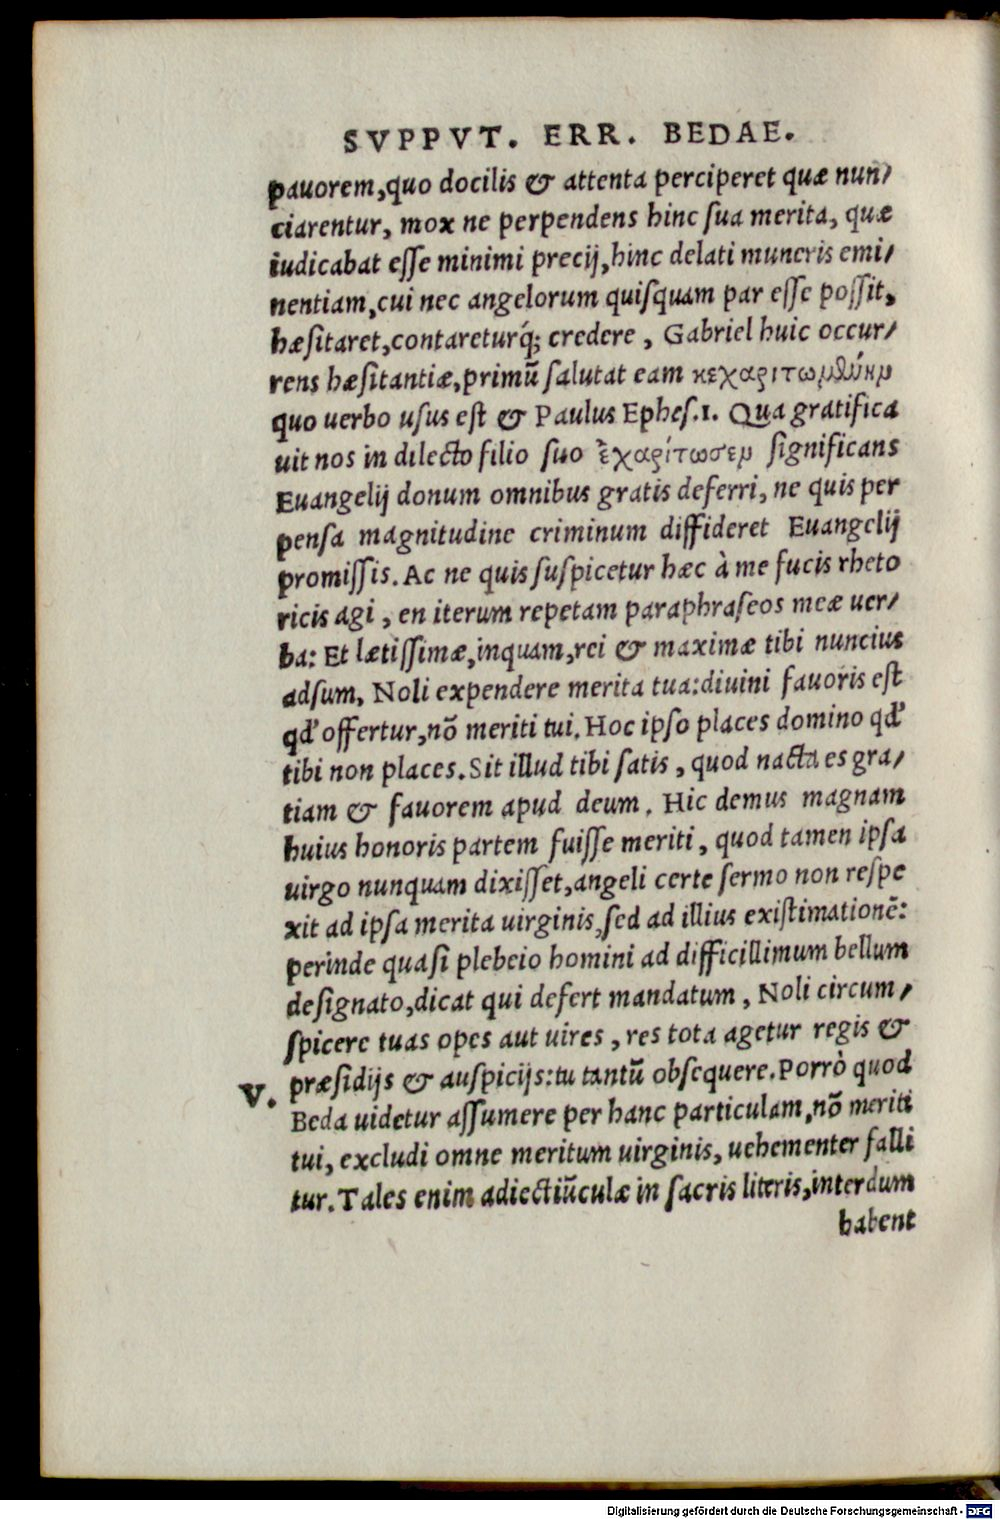 SVPPVT. ERR. BEDAE.
pauorem,quo docilis & attenta perciperet quæ nun/
ciarentur, mox ne perpendens hinc sua merita, quæ
iudicabat esse minimi precij,hinc delati muneris emi/
nentiam,cui nec angelorum quisquam par esse possit,
hæsitaret,contareturq́; credere , Gabriel huic occur/
rens hæsitantiæ,primũ salutat eam κεχαριτωμένην
quo uerbo usus est & Paulus Ephes.1. Qua gratifica
uit nos in dilecto filio suo ἐχαρίτωσεν significans
Euangelij donum omnibus gratis deferri, ne quis per
pensa magnitudine criminum diffideret Euangelij
promissis. Ac ne quis suspicetur hæc à me fucis rheto
ricis agi , en iterum repetam paraphraseos meæ uer/
ba: Et lætissimæ,inquam,rei & maximæ tibi nuncius
adsum, Noli expendere merita tua:diuini fauoris est
qđ offertur,nõ meriti tui. Hoc ipso places domino qđ
tibi non places. Sit illud tibi satis , quod nacta es gra/
tiam & fauorem apud deum . Hic demus magnam
huius honoris partem fuisse meriti , quod tamen ipsa
uirgo nunquam dixisset,angeli certe sermo non respe
xit ad ipsa merita uirginis,sed ad illius existimationẽ:
perinde quasi plebeio homini ad difficillimum bellum
designato,dicat qui defert mandatum , Noli circum/
spicere tuas opes aut uires , res tota agetur regis &
præsidijs & auspicijs:tu tantũ obsequere. Porrò quod
V.
Beda uidetur assumere per hanc particulam,nõ meriti
tui, excludi omne meritum uirginis, uehementer falli
tur. Tales enim adiectiũculæ in sacris literis,interdum
habent
Digitalisierung gefördert durch die Deutsche Forschungsgemeinschaft - DFG